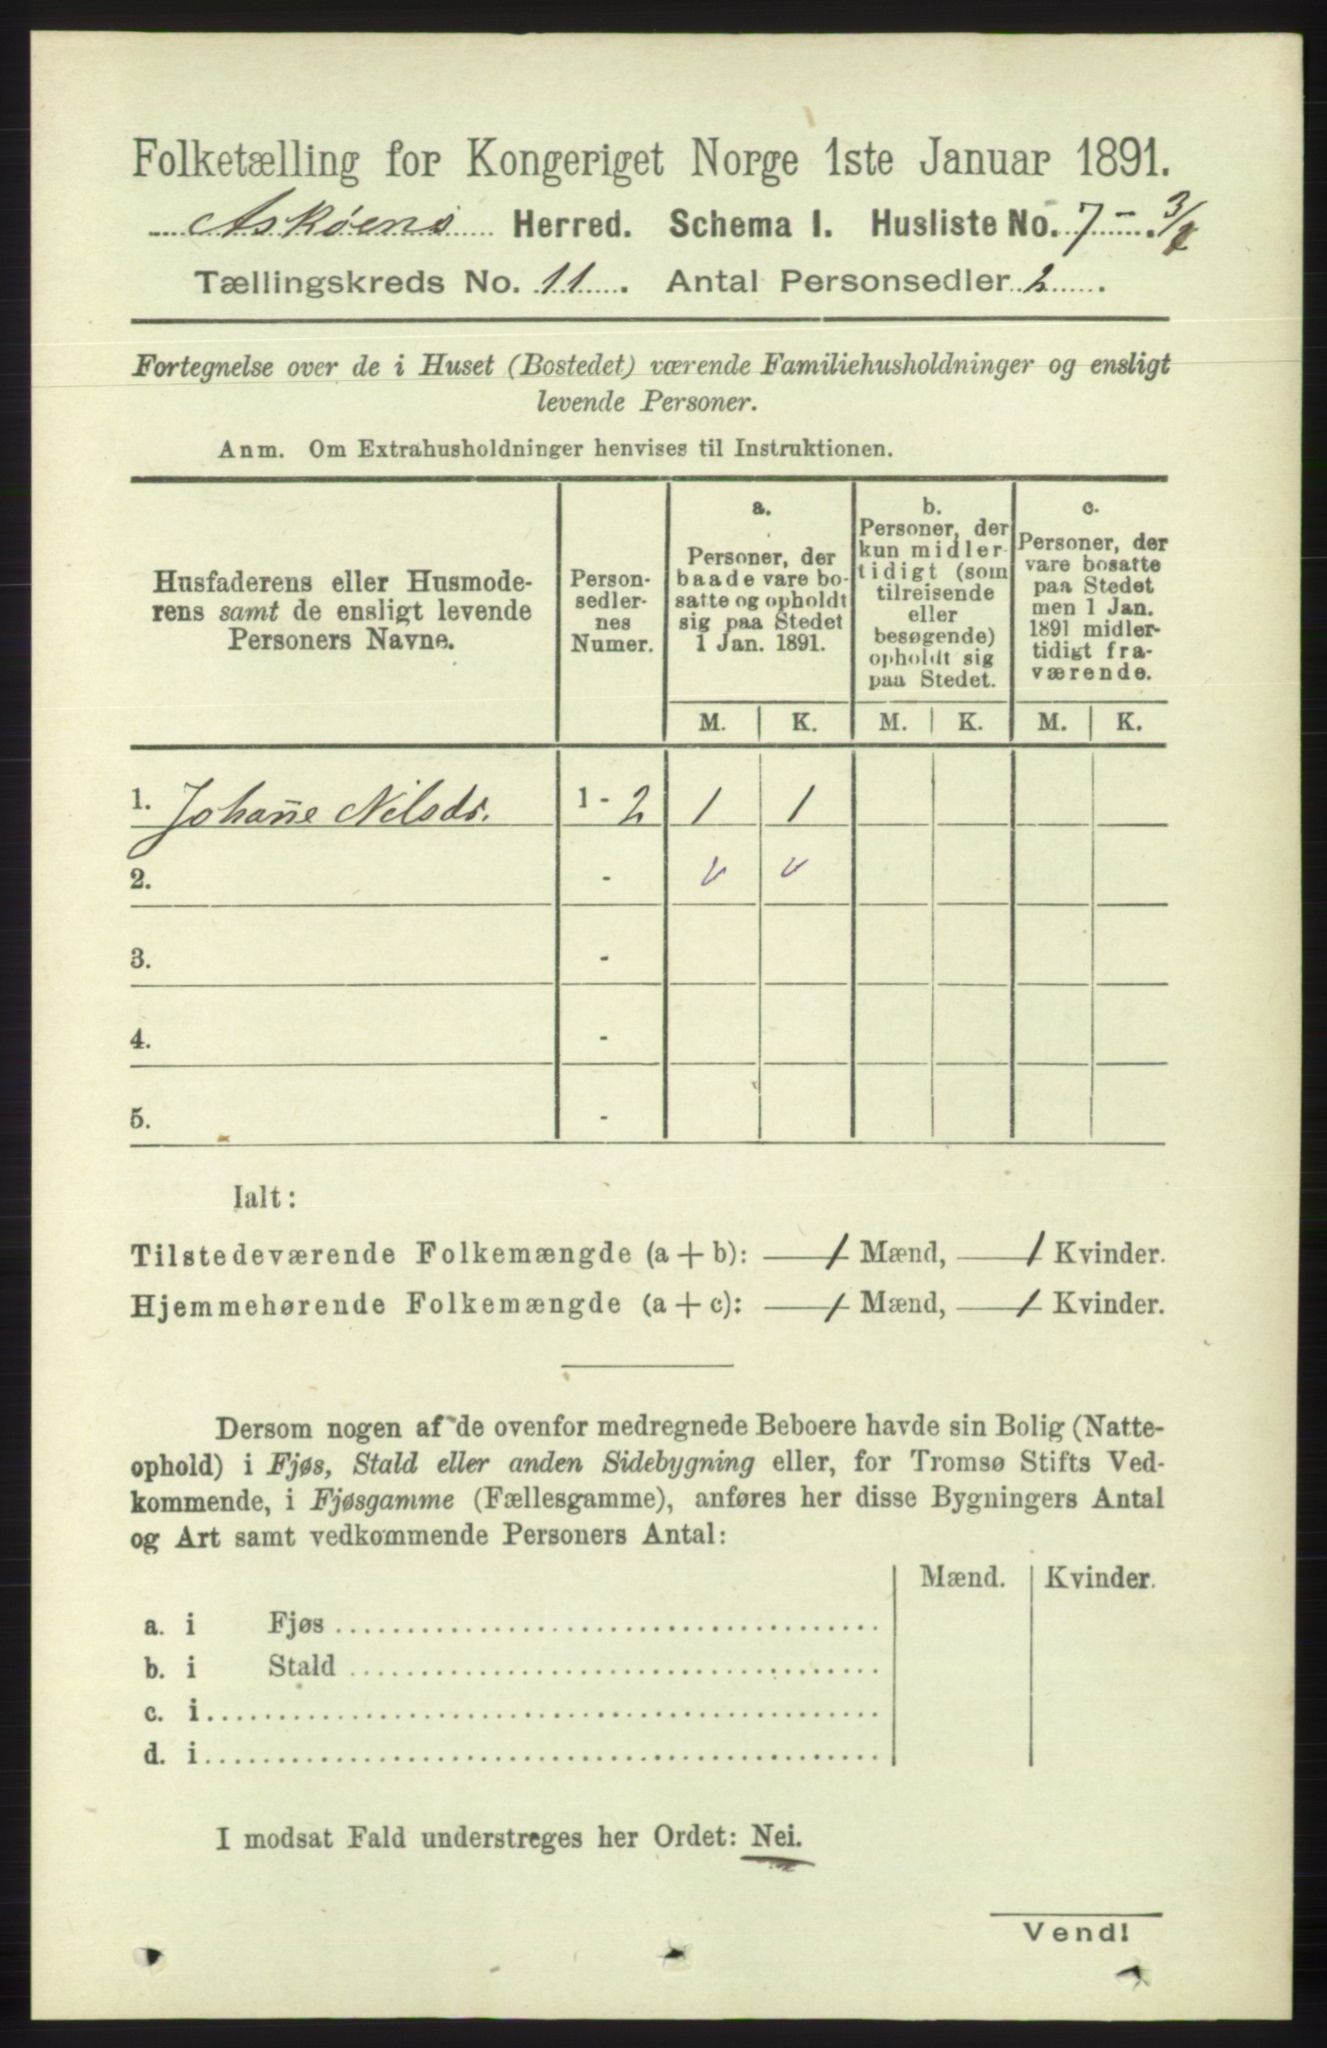 Folketælling for Kongeriget Norge 1ste Januar 1891.
Askøens Herred. Schema I. Husliste No. 7 -
Tællingskreds No. 11. Antal Personsedler 2.
Fortegnelse over de i Huset (Bostedet) værende Familiehusholdninger og ensligt
levende Personer.
Anm. Om Extrahusholdninger henvises til Instruktionen.
Husfaderens eller Husmode-
rens samt de ensligt levende
Personers Navne.
Person-
sedler-
nes
Numer.
a.
Personer, der
baade vare bo-
satte og opholdt
sig paa Stedet
1 Jan. 1891.
b.
Personer, der
kun midler-
tidigt (som
tilreisende
eller
besøgende)
opholdt sig
paa Stedet.
c.
Personer, der
vare bosatte
paa Stedet
men 1 Jan.
1891 midler-
tidigt fra-
værende.
M. K. M. K. M. K.
1. Johan̄e Nilsds. 1 - 2 1 1
2. - v v
3. -
4. -
5. -
Ialt:
Tilstedeværende Folkemængde (a + b): 1 Mænd, 1 Kvinder.
Hjemmehørende Folkemængde (a + c): 1 Mænd, 1 Kvinder.
Dersom nogen af de ovenfor medregnede Beboere havde sin Bolig (Natte-
ophold) i Fjøs, Stald eller anden Sidebygning eller, for Tromsø Stifts Ved-
kommende, i Fjøsgamme (Fællesgamme), anføres her disse Bygningers Antal
og Art samt vedkommende Personers Antal:
Mænd. Kvinder.
a. i Fjøs
b. i Stald
c. i
d. i
I modsat Fald understreges her Ordet: Nei.
Vend!